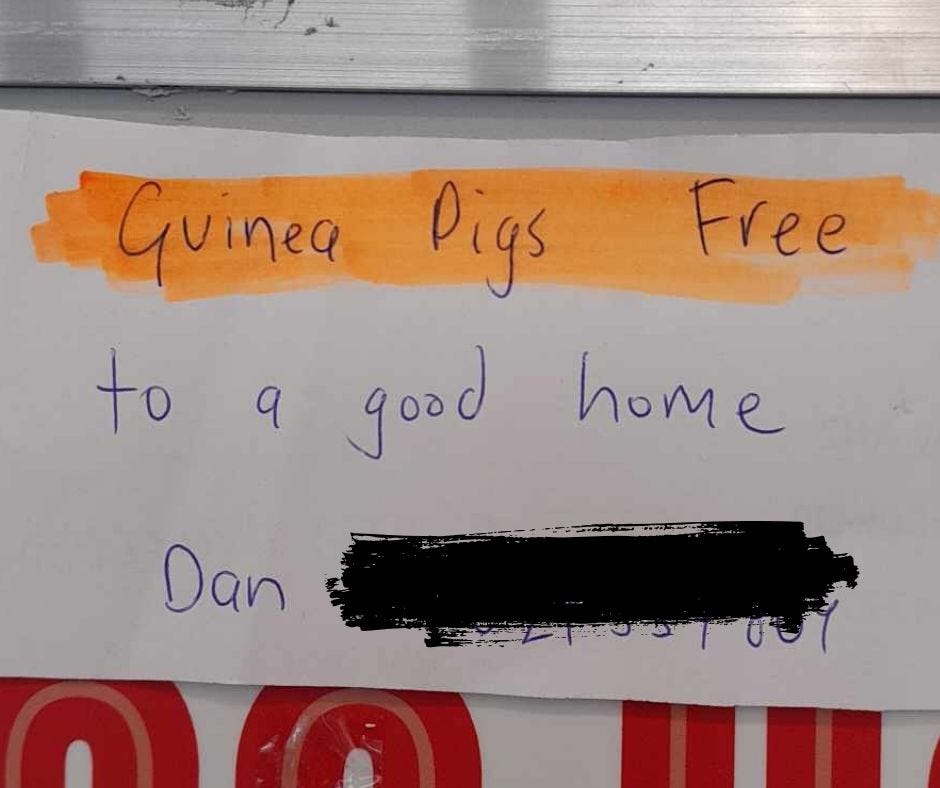 Guinea Pigs Free
to a good home
Dan